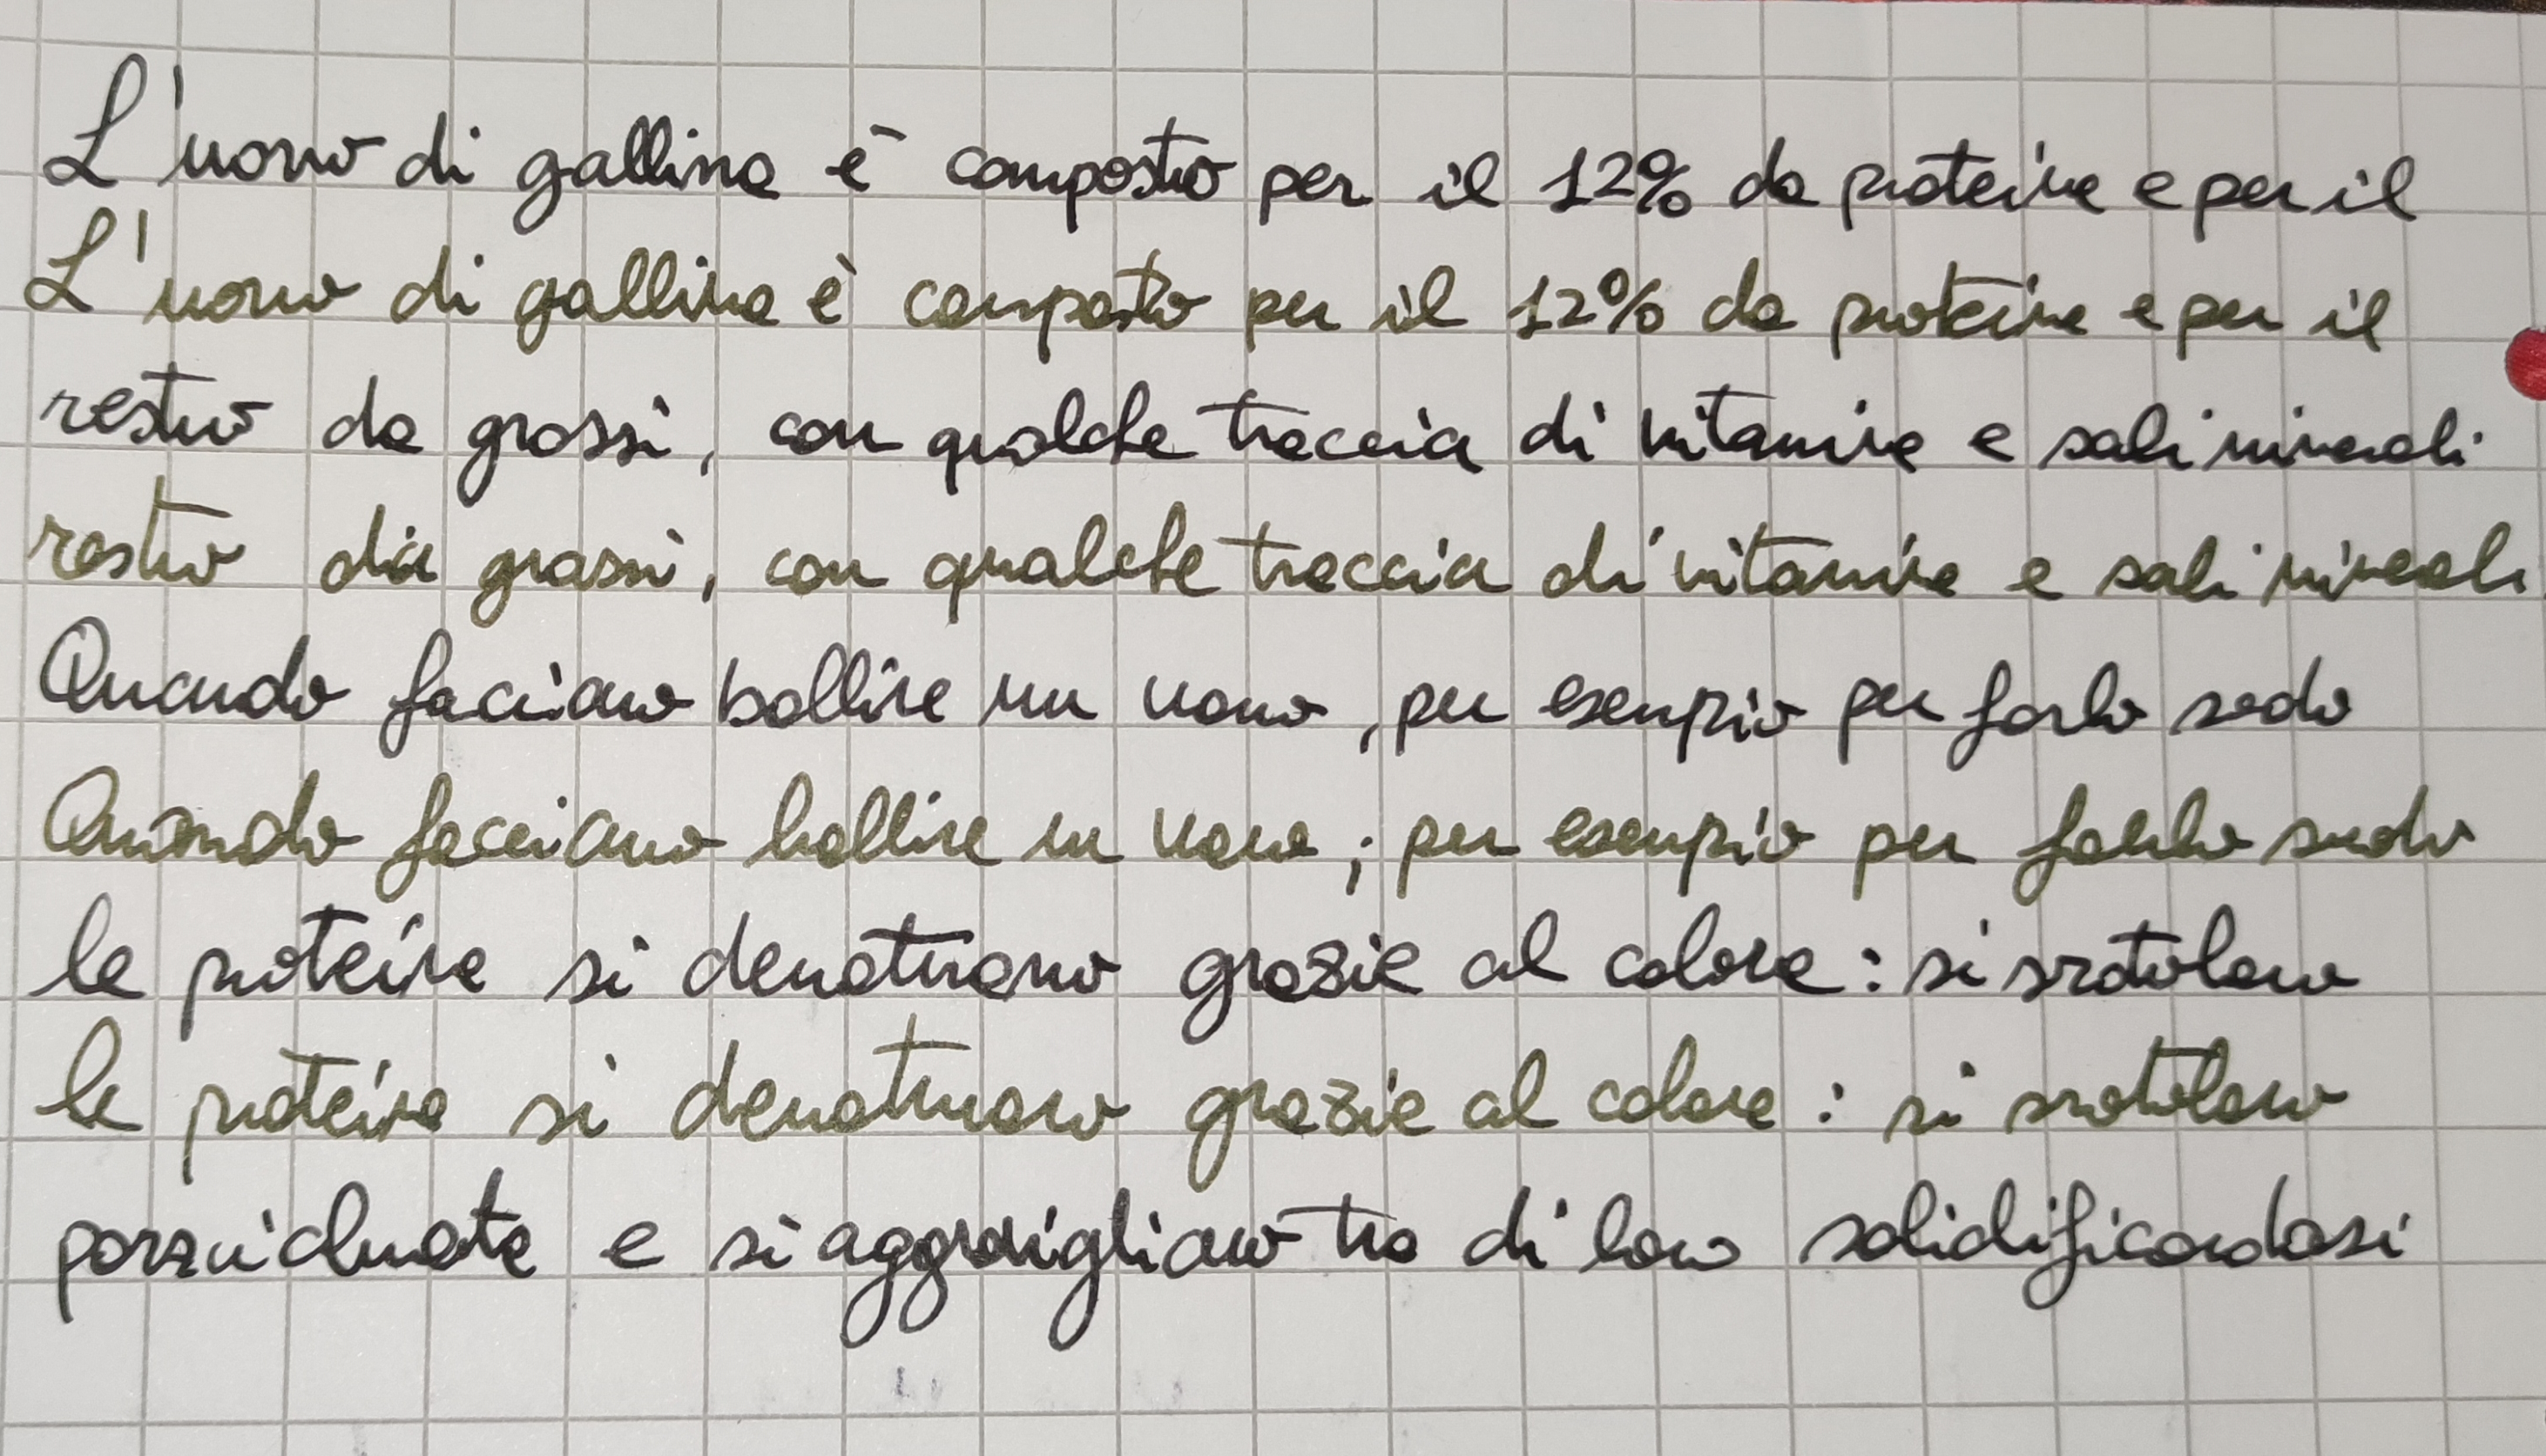 L'uovo di gallina è composto per il 12% da proteine e per il
L'uovo di gallina è composto per il 12% da proteine e per il
resto da grassi, con qualche traccia di vitamine e sali minerali
resto da grassi, con qualche traccia di vitamine e sali minerali
Quando facciamo bollire un uovo, per esempio per farlo sodo
Quando facciamo bollire un uovo, per esempio per farlo sodo
le proteine si denaturano grazie al calore: si srotolano
le proteine si denaturano grazie al calore: si srotolano
parzialmente e si aggrovigliano tra di loro solidificandosi